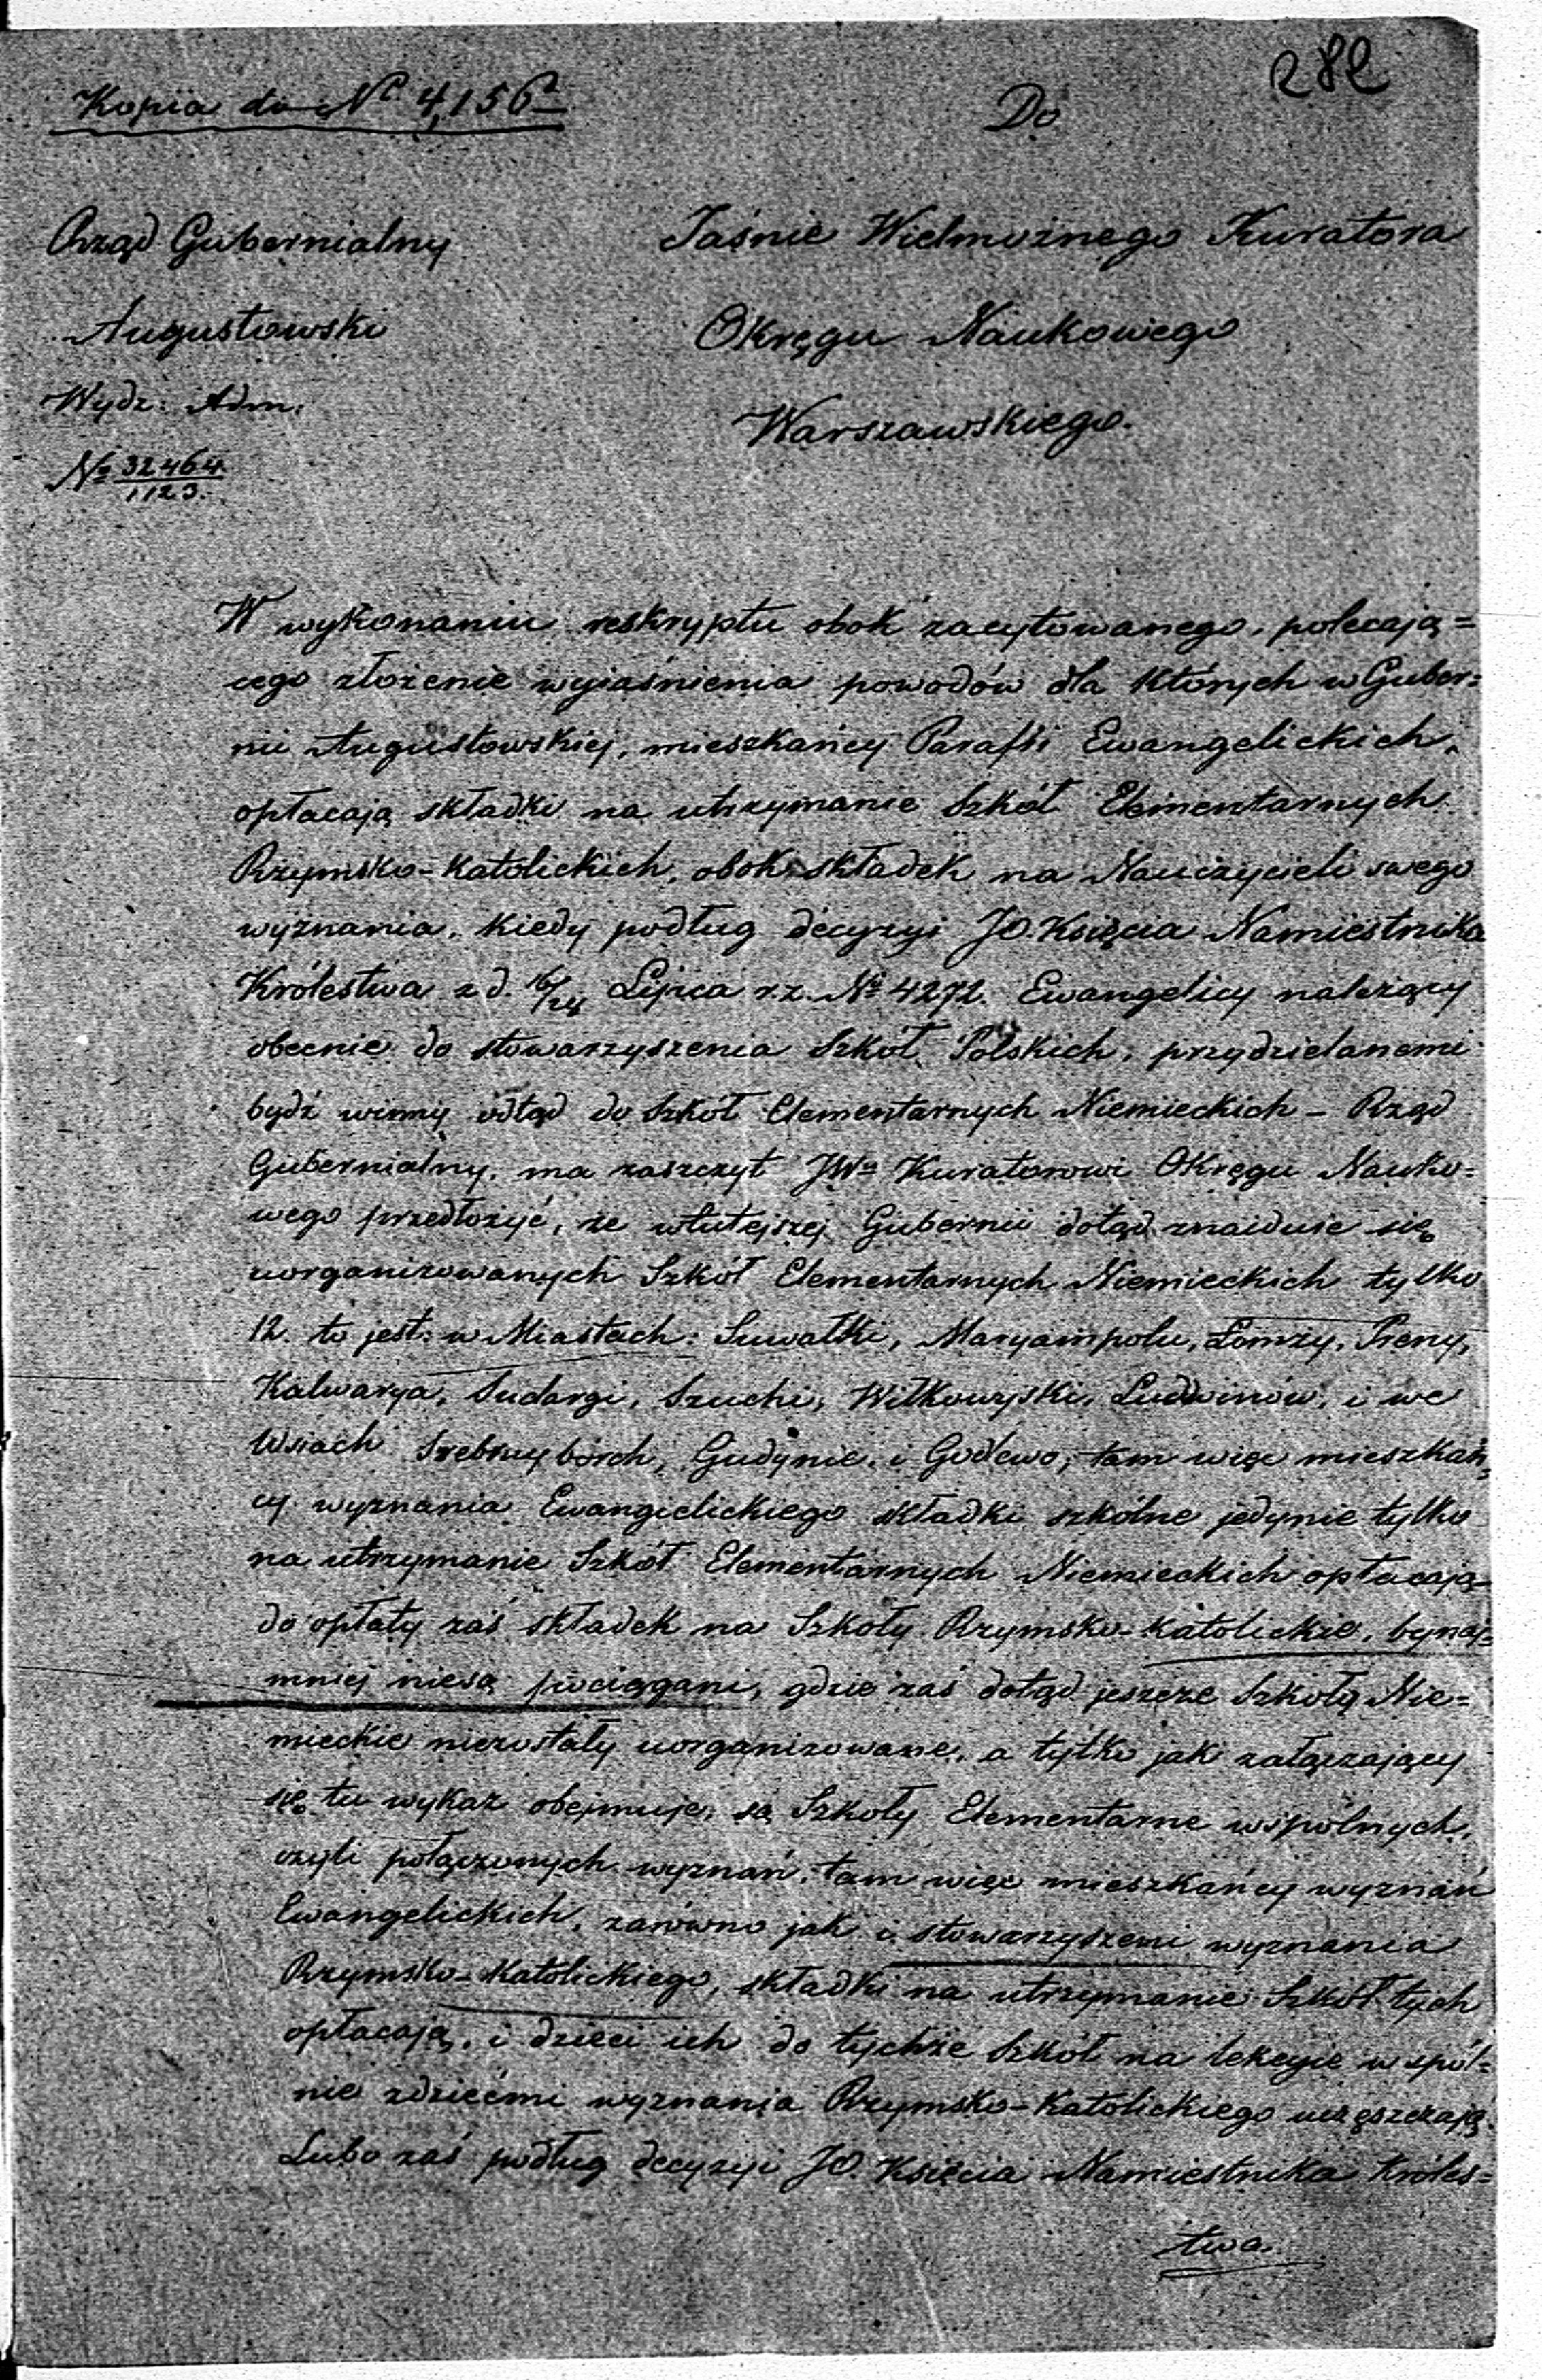 282
Kopia do Nº 4,156
Do
Rząd Gubernialny
Augustowski
Wydz: Adm.
Nº 32464/1123.
Jaśnie Wielmożnego Kuratora
Okręgu Naukowego
Warszawskiego.
W wykonaniu reskryptu obok zacytowanego, polecają=
cego złożenie wyjaśnienia powodów dla których w Guber=
nii Augustowskiej, mieszkańcy Parafii Ewangelickich,
opłacają składki na utrzymanie Szkół Elementarnych
Rzymsko-Katolickich, obok składek na Nauczycieli swego
wyznania, kiedy podług decyzyi JO. Księcia Namiestnika
Królestwa z d. Lipca r.z. Nº 4272. Ewangelicy należący
obecnie do stowarzyszenia Szkół Polskich, przydzielanemi
bydź winny odtąd do Szkół Elementarnych Niemieckich – Rząd
Gubernialny, ma zaszczyt JWº Kuratorowi Okręgu Nauko=
wego przedłożyć, że wtutejszej Gubernii dotąd znaiduie się
uorganizowanych Szkół Elementarnych Niemieckich tylko
12. to jest: w Miastach: Suwałki, Maryampolu, Łomży, Preny,
Kalwarya, Sudargi, Szuchi, Wiłkowyski, Ludwinów, i we
Wsiach Srebrnyborch, Gudynie, i Godlewo, tam więc mieszkań=
cy wyznania Ewangielickiego składki szkólne jedynie tylko
na utrzymanie Szkół Elementarnych Niemieckich opłacają
do opłaty zaś składek na Szkoły Rzymsko-Katolickie, bynaj=
mniej niesą pociągani, gdzie zaś dotąd jeszcze Szkoły Nie=
mieckie niezostały uorganizowane, a tylko jak załączający
się tu wykaz obejmuje, są Szkoły Elementarne wspólnych,
czyli połączonych wyznań, tam więc mieszkańcy wyznań
Ewangelickich, zarówno jak i stowarzyszeni wyznania
Rzymsko-Katolickiego, składki na utrzymanie Szkół tych
opłacają, i dzieci ich do tychże Szkół na lekcyie wspól=
nie zdziećmi wyznania Rzymsko-Katolickiego uczęszczają.
Lubo zaś podług decyzyi JO. Księcia Namiestnika Króles=
twa.